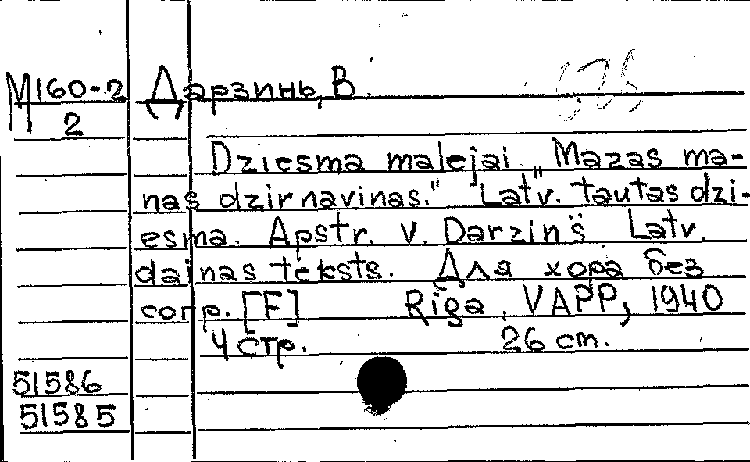 М160-2 Дарзинь, В.
2
Dziesma malejai. "Mazas ma-
nas dzirnavinas." Latv. tautas dzi-
esma. Apstr. V. Darzinš Latv.
dainas teksts. Для хора без
сопр. [F] Riga, VAPP, 1940
4 стр. 26 cm.
51586
51585